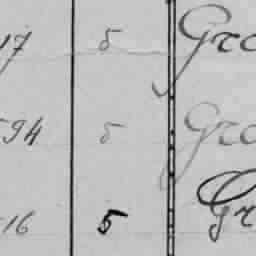 17 5 Gro
94 5 Gro
16 5 Gr